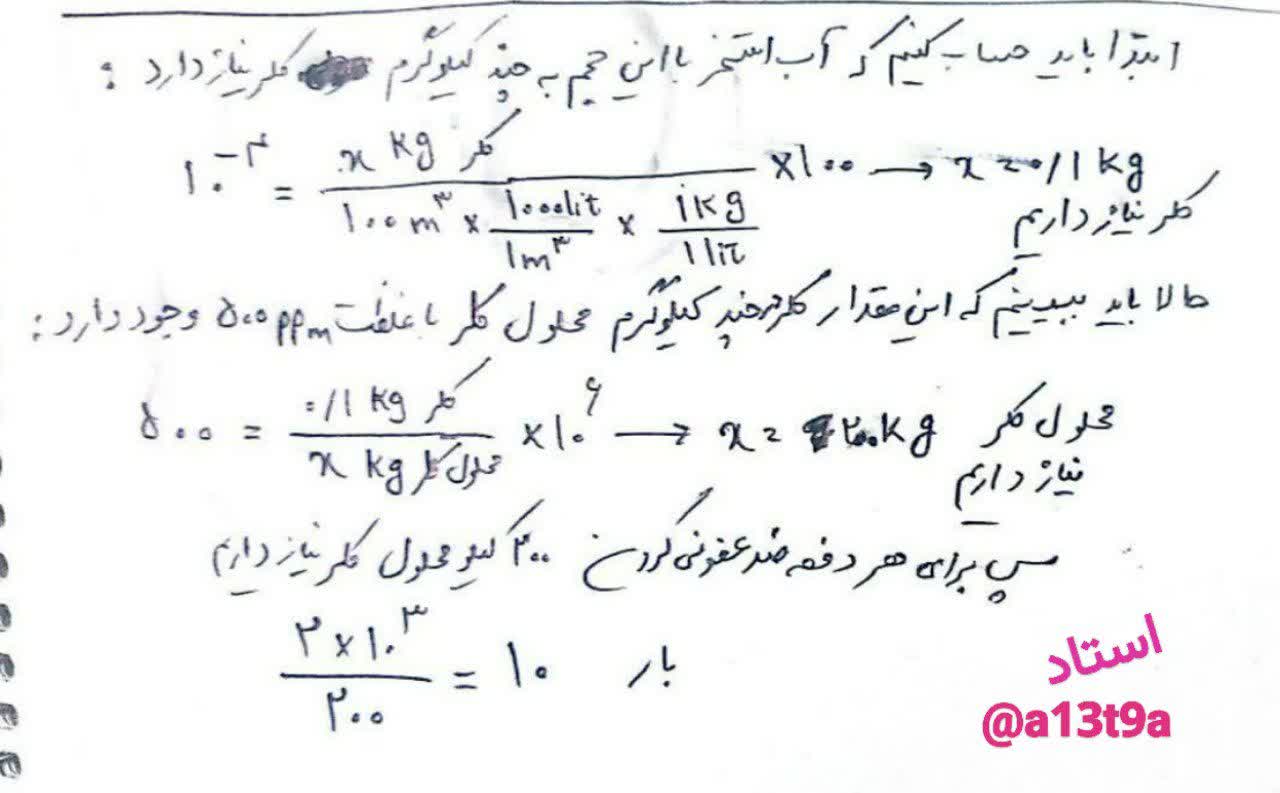 ابتدا باید حساب کنیم که آب استخر با این حجم به چند کیلوگرم کلر نیاز دارد :
۱۰^-۴ = x kg کلر / (۱۰۰ m^۳ × ۱۰۰۰ lit / ۱ m^۳ × ۱ kg / ۱ lit) × ۱۰۰ → x = ۰/۱ kg
کلر نیاز داریم
حالا باید ببینیم که این مقدار کلر در چند کیلوگرم محلول کلر با غلظت ۵۰۰ ppm وجود دارد :
۵۰۰ = ۰/۱ kg کلر / x kg محلول کلر × ۱۰^۶ → x = ۲۰۰ kg محلول کلر
نیاز داریم
پس برای هر دفعه ضدعفونی کردن ۲۰۰ کیلو محلول کلر نیاز داریم
۲ × ۱۰^۳ / ۲۰۰ = ۱۰ بار
استاد
@a13t9a